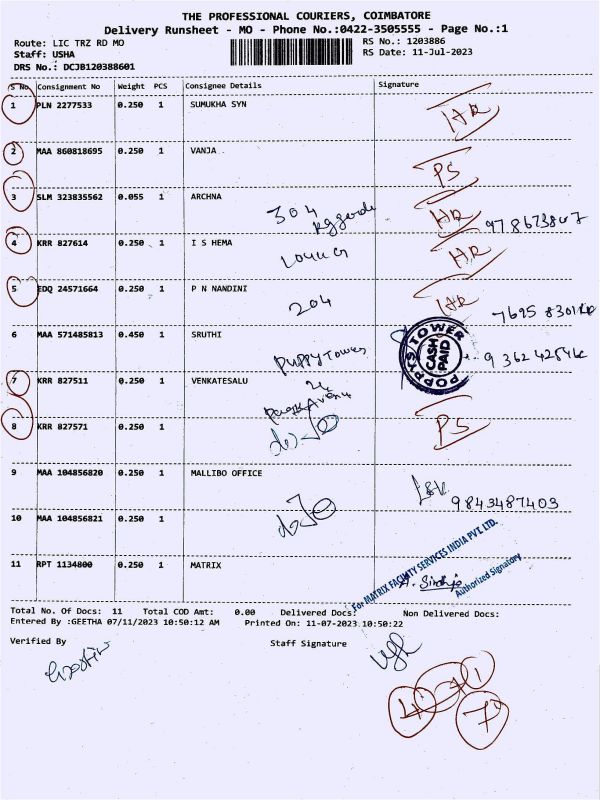 THE PROFESSIONAL COURIERS, COIMBATORE
Delivery Runsheet - MO - Phone No.:0422-3505555 - Page No.:1
Route: LIC TRZ RD MO
RS No.: 1203886
Staff: USHA
RS Date: 11-Jul-2023
DRS No.: DCJB120388601
S No. Consignment No Weight PCS Consignee Details Signature
1 PLN 2277533 0.250 1 SUMUKHA SYN
2 MAA 860818695 0.250 1 VANJA
PS
3 SLM 323835562 0.055 1 ARCHNA
304
4 KRR 827614 0.250 1 I S HEMA
5 EDQ 24571664 0.250 1 P N NANDINI
204
6 MAA 571485813 0.450 1 SRUTHI
POPPYS TOWER
CASH
PAID
Puppy Towers
7 KRR 827511 0.250 1 VENKATESALU
8 KRR 827571 0.250 1
PS
9 MAA 104856820 0.250 1 MALLIBO OFFICE
9843487403
10 MAA 104856821 0.250 1
11 RPT 1134800 0.250 1 MATRIX
For MATRIX FACILITY SERVICES INDIA PVT. LTD.
Authorized Signatory
Total No. Of Docs: 11 Total COD Amt: 0.00 Delivered Docs: Non Delivered Docs:
Entered By :GEETHA 07/11/2023 10:50:12 AM Printed On: 11-07-2023 10:50:22
Verified By Staff Signature
4 7 1
7